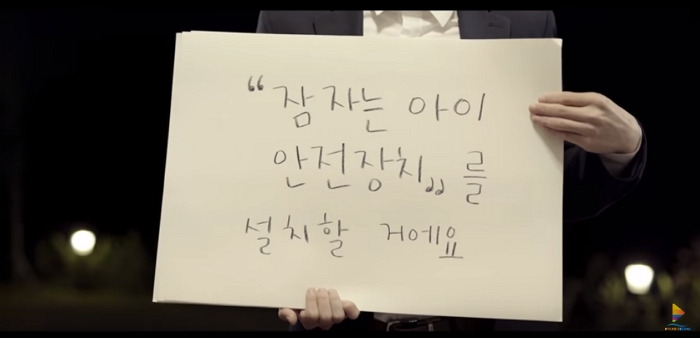 “잠자는 아이
안전장치„를
설치할 거에요